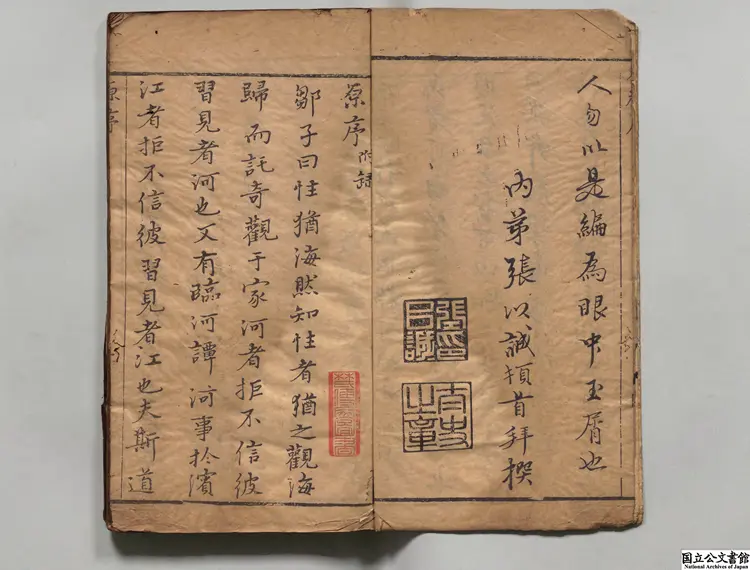 人勿以是編為眼中玉屑也
內弟張以誠頓首拜撰
原序附録
鄒子曰性猶海然知性者猶之觀海
歸而託奇觀于家河者拒不信彼
習見者河也又有臨河譚河事扵濱
江者拒不信彼習見者江也夫斯道
原序
国立公文書館
National Archives of Japan